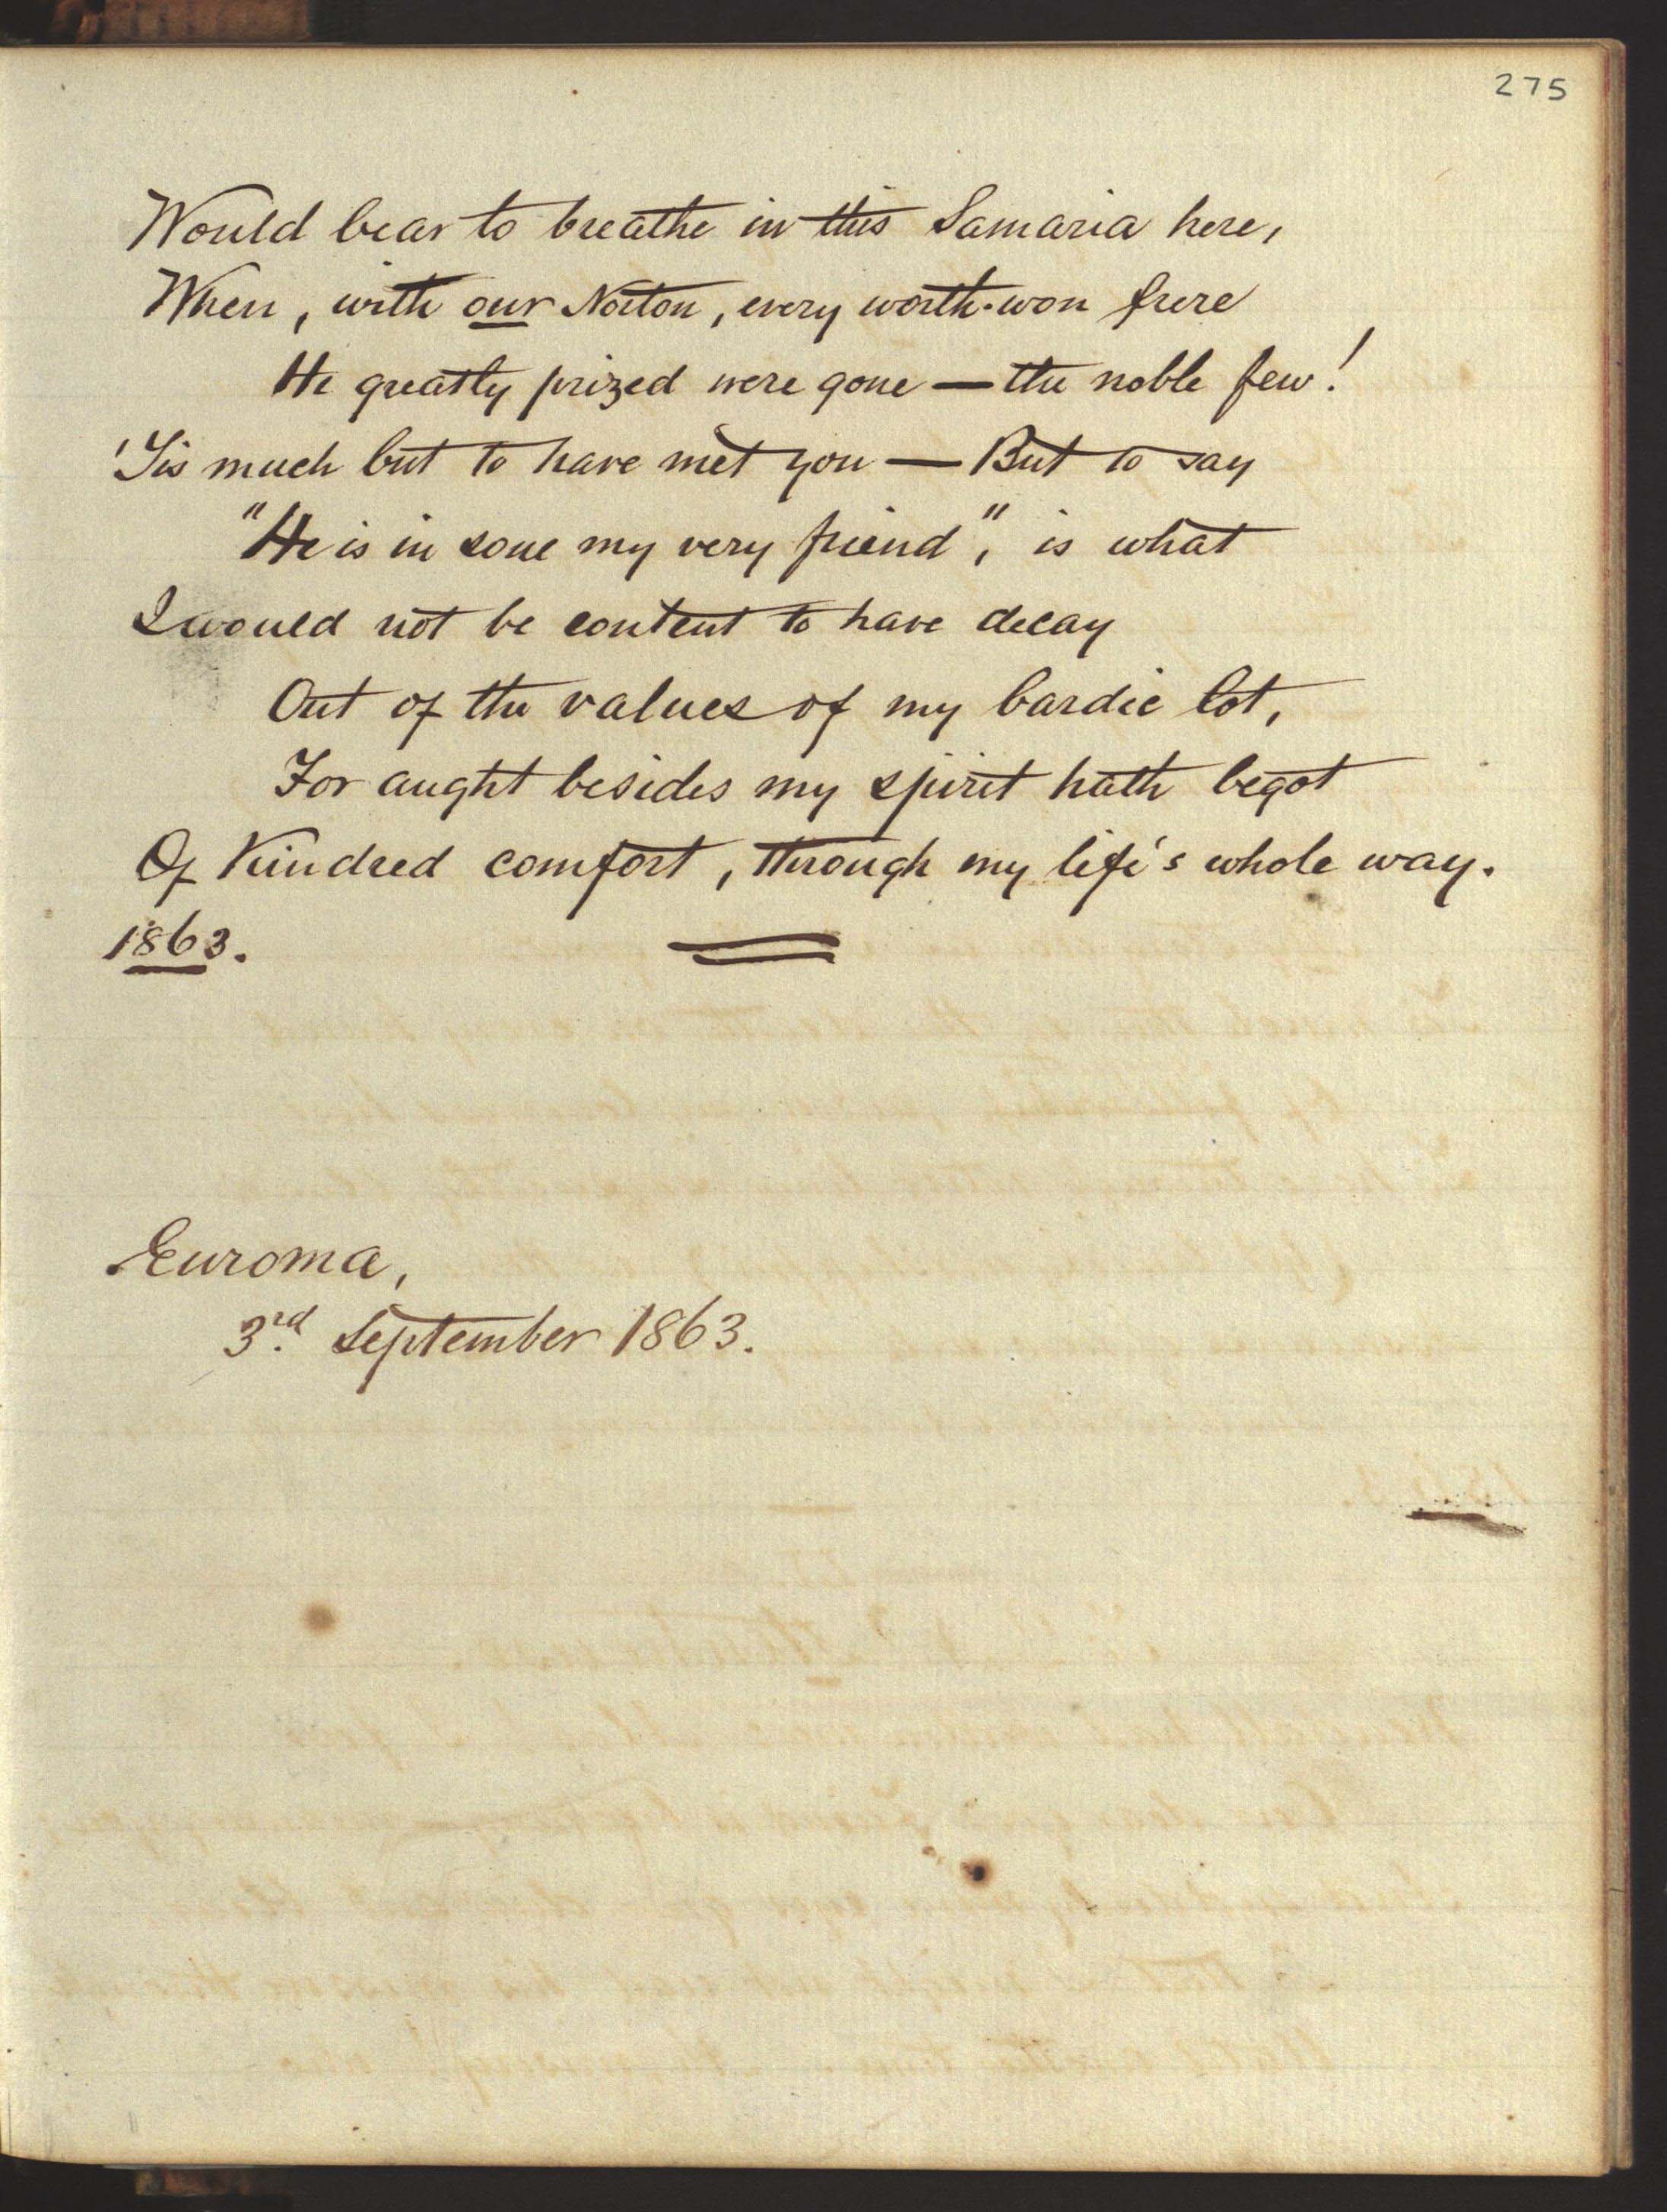 275
Would bear to breathe in this Samaria here,
When, with our Norton, every worth-won frere
He greatly prized were gone — the noble few!
'Tis much but to have met you — But to say
"He is in soul my very friend", is what
I would not be content to have decay
Out of the values of my bardic lot,
For aught besides my spirit hath begot
Of Kindred comfort, through my life's whole way.
1863.
Euroma,
3rd. September 1863.